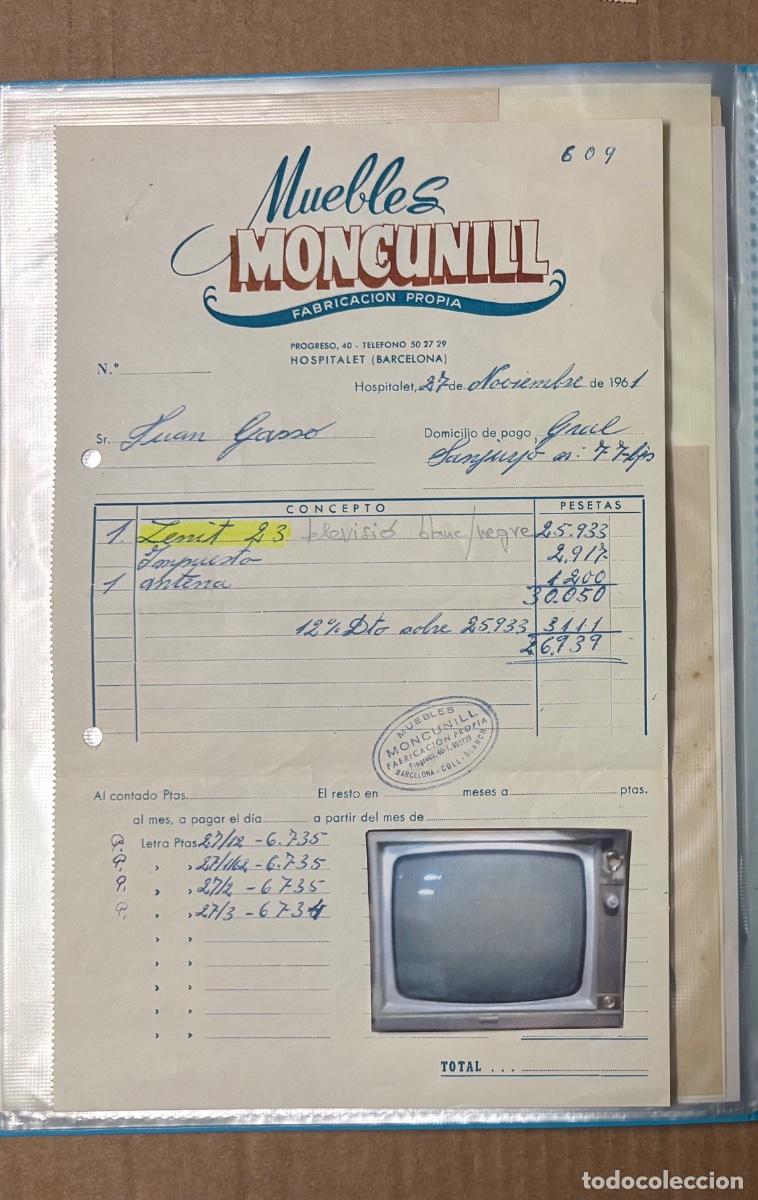 609
Muebles
MONCUNILL
FABRICACION PROPIA
PROGRESO, 40 - TELEFONO 50 27 29
HOSPITALET (BARCELONA)
N.º
Hospitalet, 27 de Noviembre de 1961
Sr. Juan Gassó Domicilio de pago Gral
Sanjurjo
CONCEPTO PESETAS
1 Zenit 23 televisió blanc/negre 25.933
Impuesto 2.917
1 antena 1200
30.050
12% Dto sobre 25.933 3111
26.939
MUEBLES
MONCUNILL
FABRICACIÓN PROPIA
Progreso, 40-T. 502729
BARCELONA - COLL-BLANCH
Al contado Ptas. El resto en meses a ptas.
al mes, a pagar el día a partir del mes de
P. Letra Ptas 27/12 - 6.735
P. » » 27/1/62 - 6.735
P. » » 27/2 - 6735
P. » » 27/3 - 6734
» »
» »
» »
» »
» »
TOTAL . . .
todocoleccion